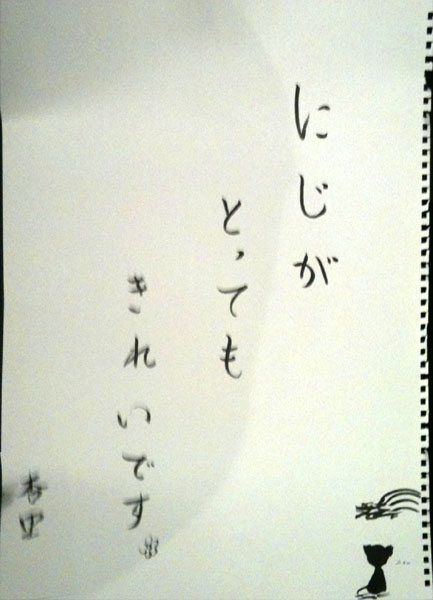 にじが
とっても
きれいです
杏里